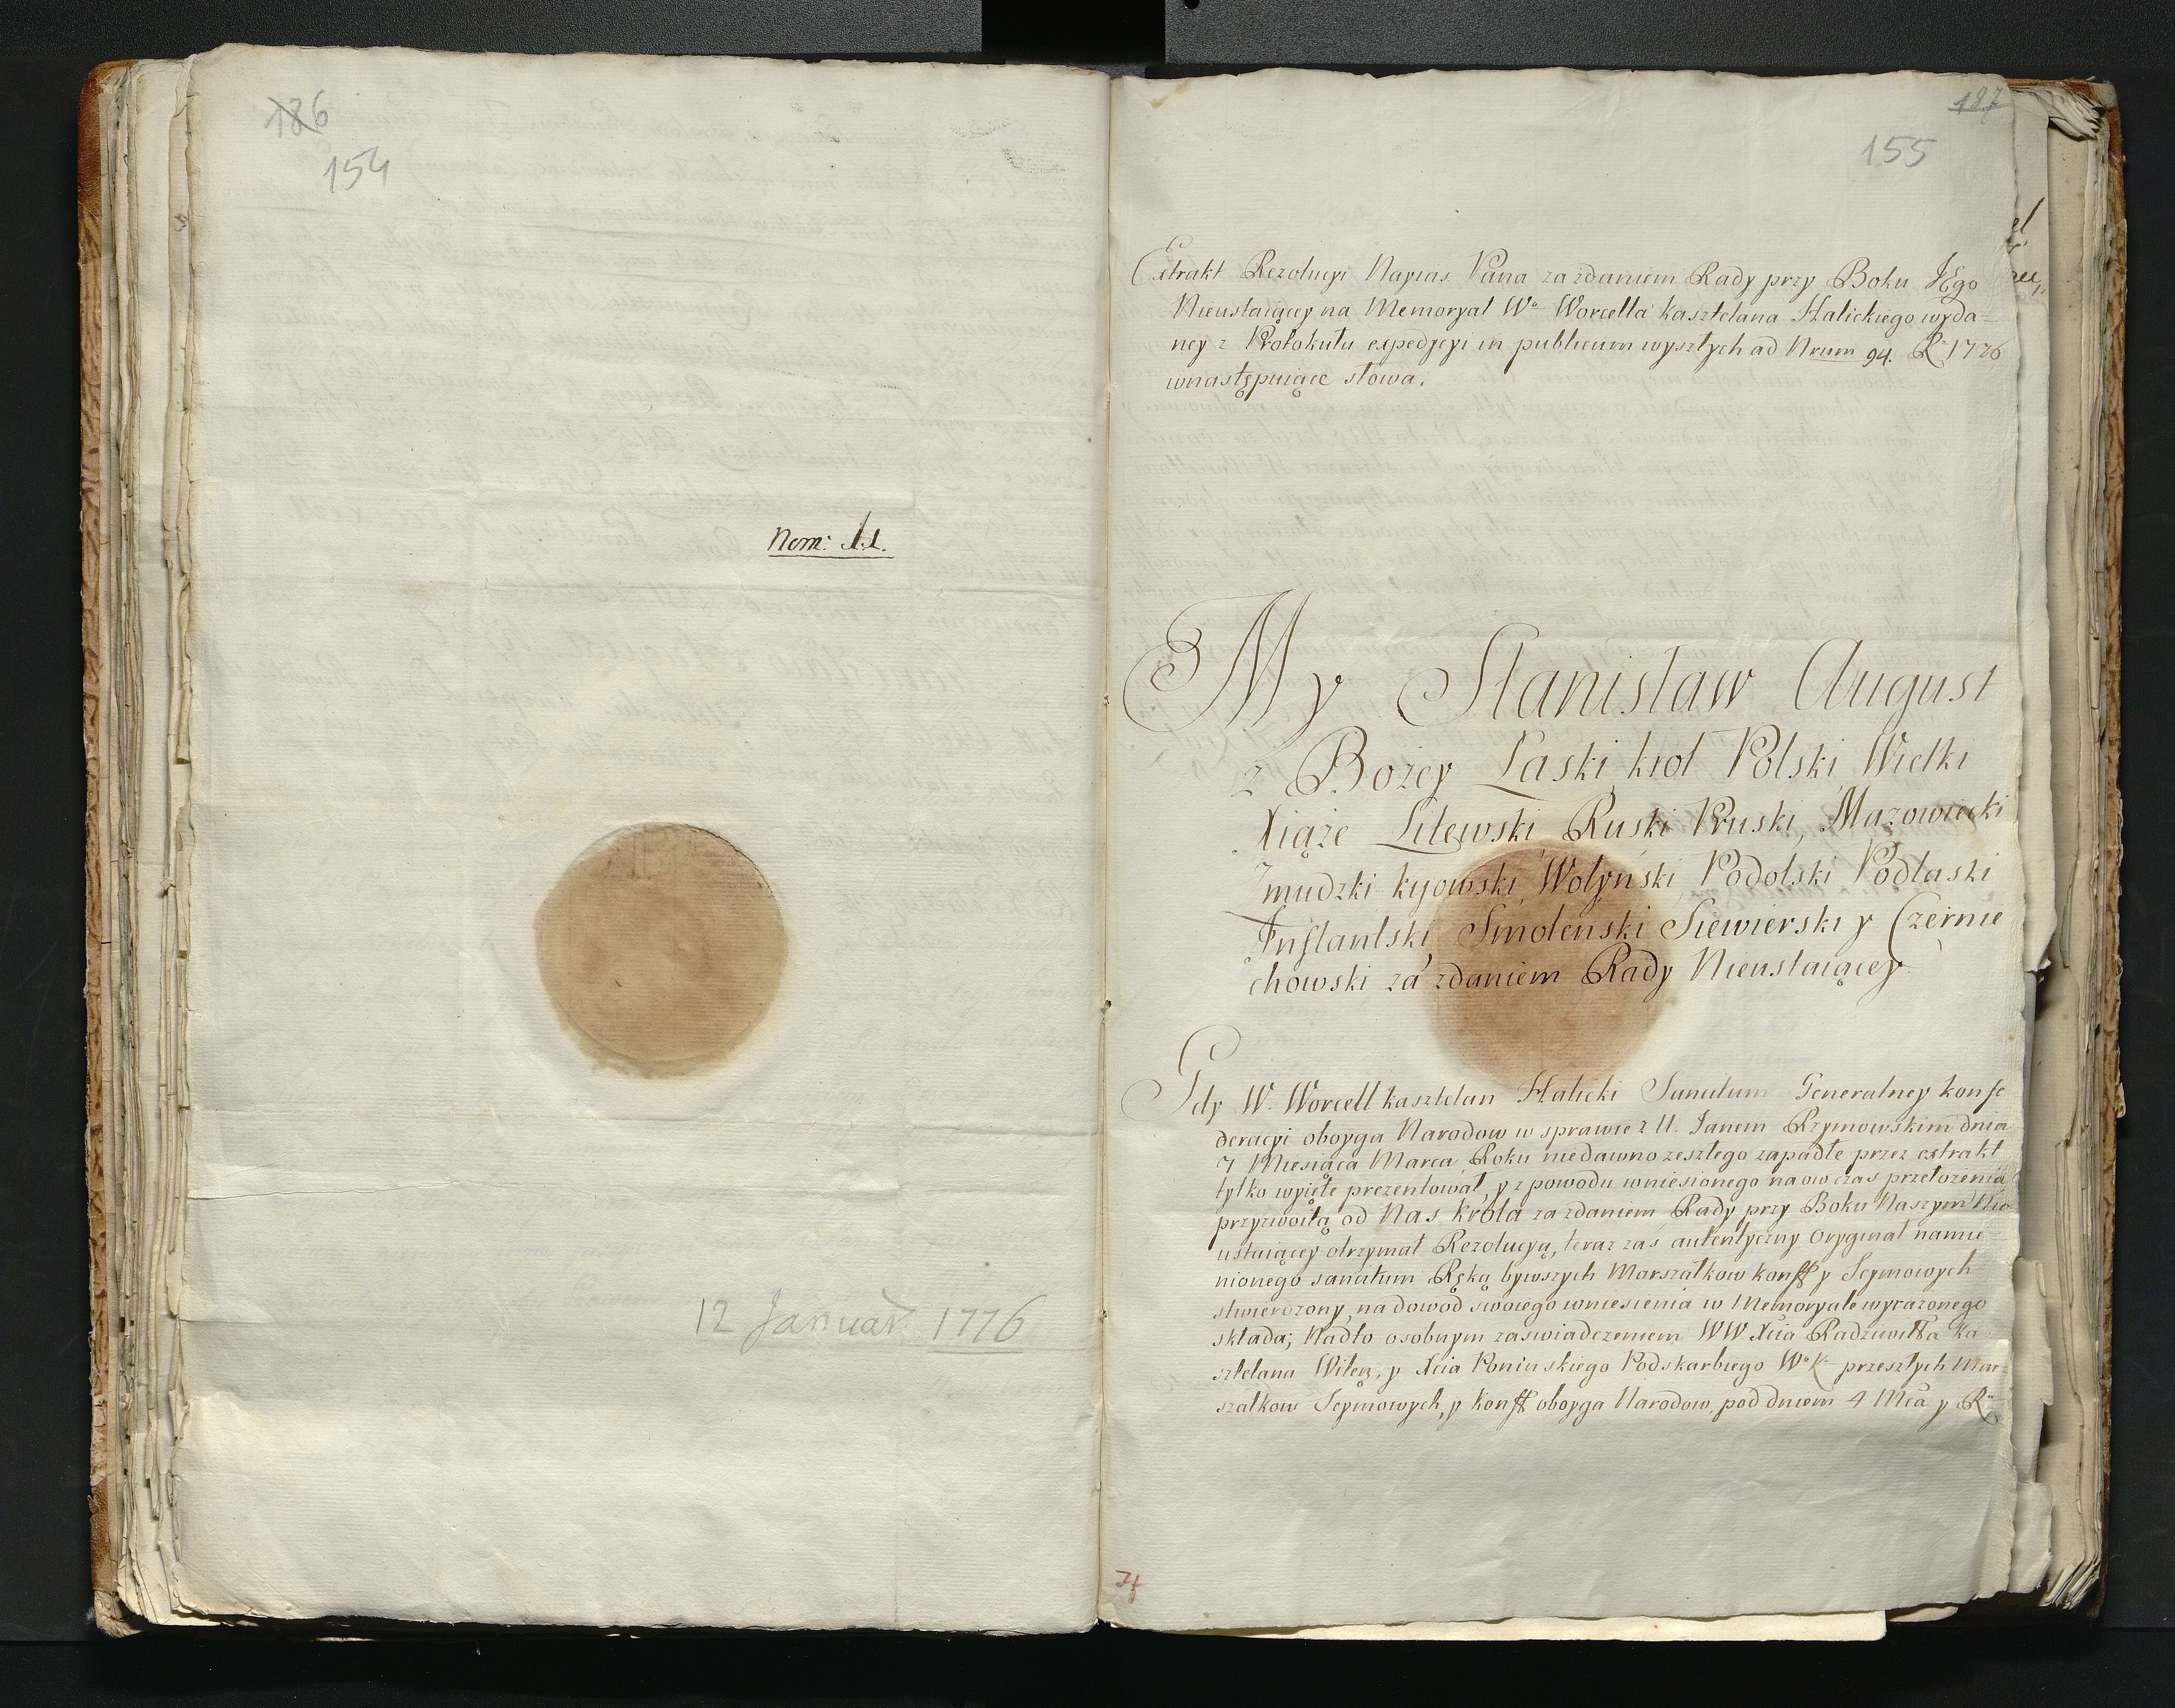 186
154
Nem: 11.
12 Januar. 1776
187
155
Extrakt Rezolucyi Nayias Pana za zdaniem Rady przy Boku JEgo
Nieustaiącey na Memoryał Wo Worcella kasztelana Halickiego wyda=
ney z Protokułu expedycyi in publicum wyszłych ad Nrum 94. R 1776
wnastępuiące słowa.
My Stanisław August
z Bożey Łaski krol Polski Wielki
Xiąże Litewski Ruski Pruski, Mazowiecki
Zmudzki kyowski, Wołyński, Podolski Podlaski
Inflantski, Smoleński Siewierski y Czernie
chowski za zdaniem Rady Nieustaiącey
Gdy W. Worcell kasztelan Halicki Sancitum Generalney konfe
deracyi oboyga Narodow w sprawie z U. Janem Rzymowskim dnia
7 Miesiąca Marca Roku niedawno zeszłego zapadłe przez extrakt
tylko wyięte prezentował, y z powodu wniesionego na ow czas przełożenia
przyzwoitą od Nas krola za zdaniem Rady przy Boku Naszym Nie
ustaiącey otrzymał Rezolucyą, teraz zas autentyczny oryginał namie
nionego sancitum Ręką bywszych Marszałkow konff y Seymowych
stwierdzony, na dowod swoiego wniesienia w Memoryale wyrażonego
składa; Nadto osobnym zaswiadczeniem WW Xcia Radziwiłła ka
sztelana Wileń, y Xcia Poninskiego Podskarbiego Wo K przeszłych Mar=
szałkow Seymowych, y konff oboyga Narodow, pod dniem 4 Mca y R